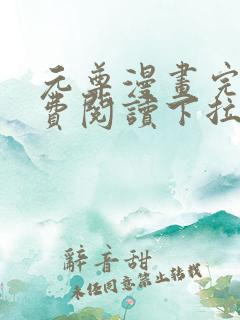 元尊漫畫完
費閱讀下拉
辭音甜
未經同意禁止轉載